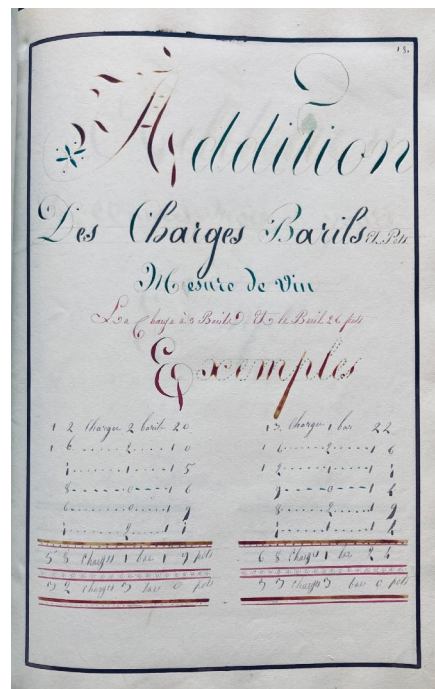 13.
Addition
Des Charges Barils Et Pots
Mesure de Vin
La Charge à 3 Barils Et le Baril 26 pots
Exemples
12 Charges 2 barils 20
16 2 10
1 15
8 0 16
6 0 19
2
58 Charges 1 bar 19 pots
52 Charges 3 bar 0 pots
13 Charges 1 bar 22
16 2 16
12 1 1
9 0 16
8 2 19
1 1
68 Charges 1 bar 26
55 Charges 3 bar 0 pots